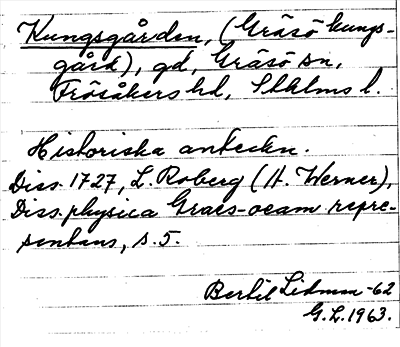 Kungsgården, (Gräsö kungs-
gård), gd, Gräsö sn,
Frösåkers hd, Sthlms l.
Historiska anteckn.
Diss. 1727, L. Roberg (H. Werner),
Diss. physica Graes-oeam repre-
sentans, s. 5.
Bertil Lidman -62
G.L. 1963.